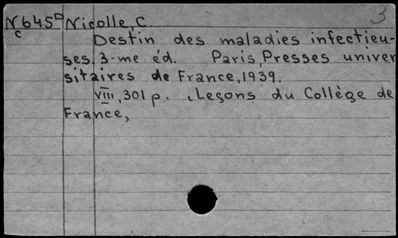 3
N645D Nicolle, C.
c
Destin des maladies infectieu-
ses. 3-me éd. Paris, Presses univer
sitaires de France, 1939.
VIII, 301 p. (Leçons du Collège de
France,